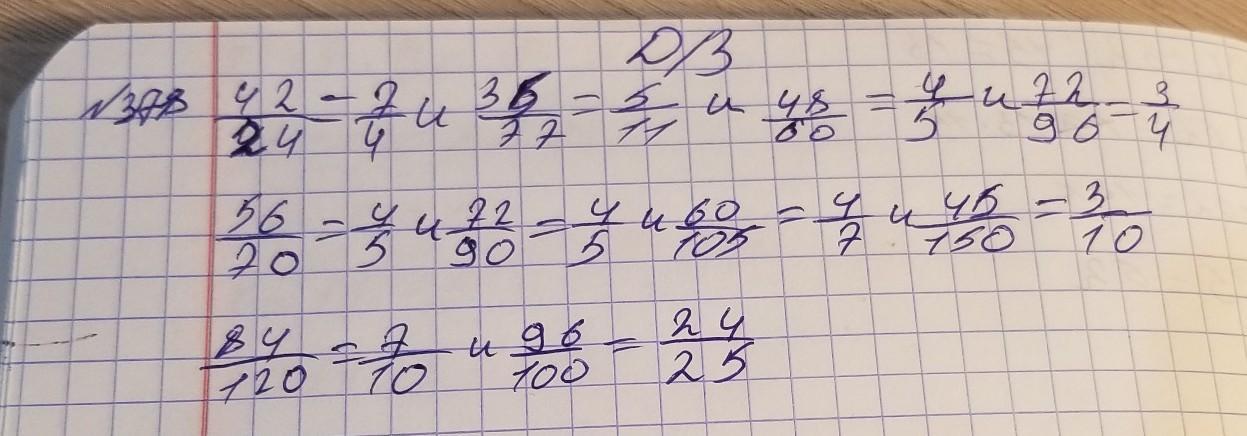 Д/З
№378 42/24 = 7/4 и 35/77 = 5/11 и 48/60 = 4/5 и 72/96 = 3/4
56/70 = 4/5 и 72/90 = 4/5 и 60/105 = 4/7 и 45/150 = 3/10
84/120 = 7/10 и 96/100 = 24/25